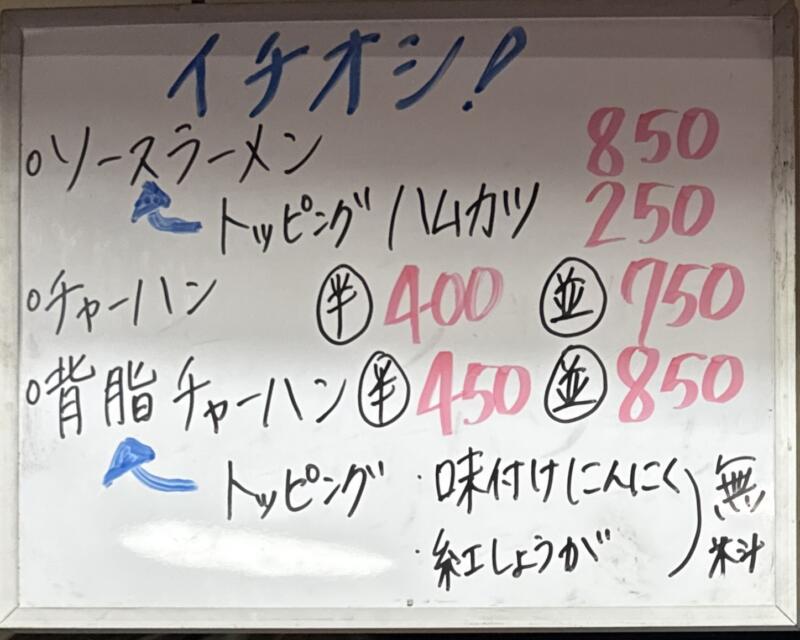 イチオシ!
○ソースラーメン 850
トッピング ハムカツ 250
○チャーハン ㊥半 400 並 750
○背脂チャーハン 半 450 並 850
トッピング ・味付けにんにく
・紅しょうが
無料